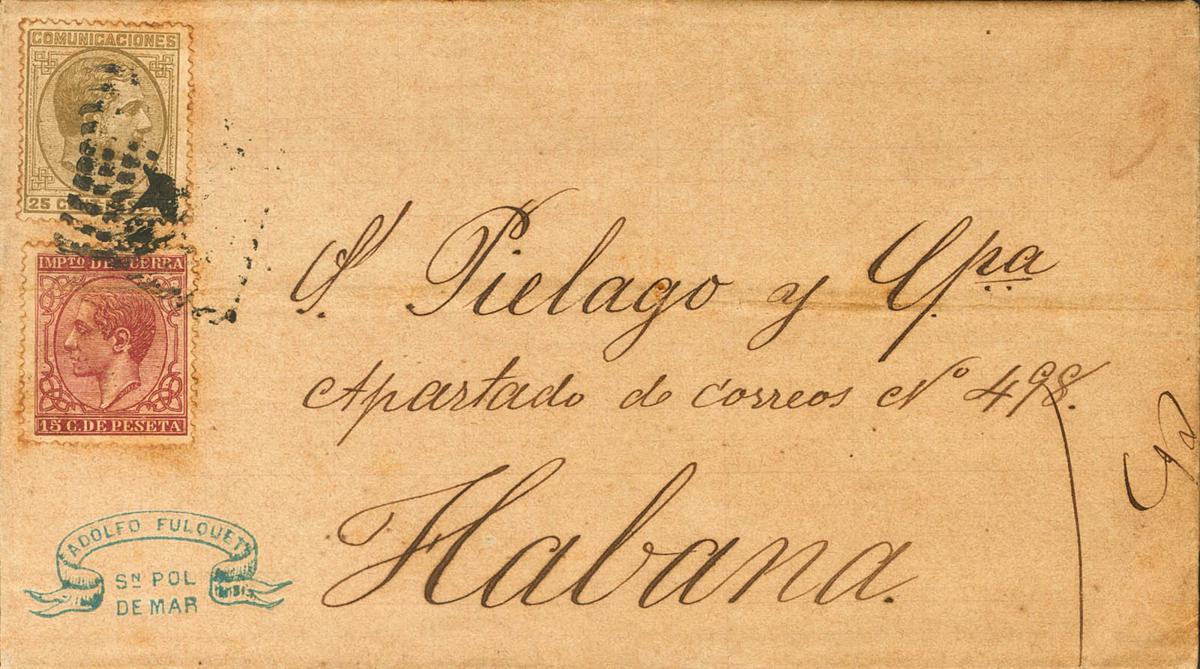 COMUNICACIONES
25 C
IMPTO DE GUERRA
15 C. DE PESETA
S. Pielago y Cpa
Apartado de correos No 498.
Habana.
ADOLFO FULQUET
SN POL
DE MAR